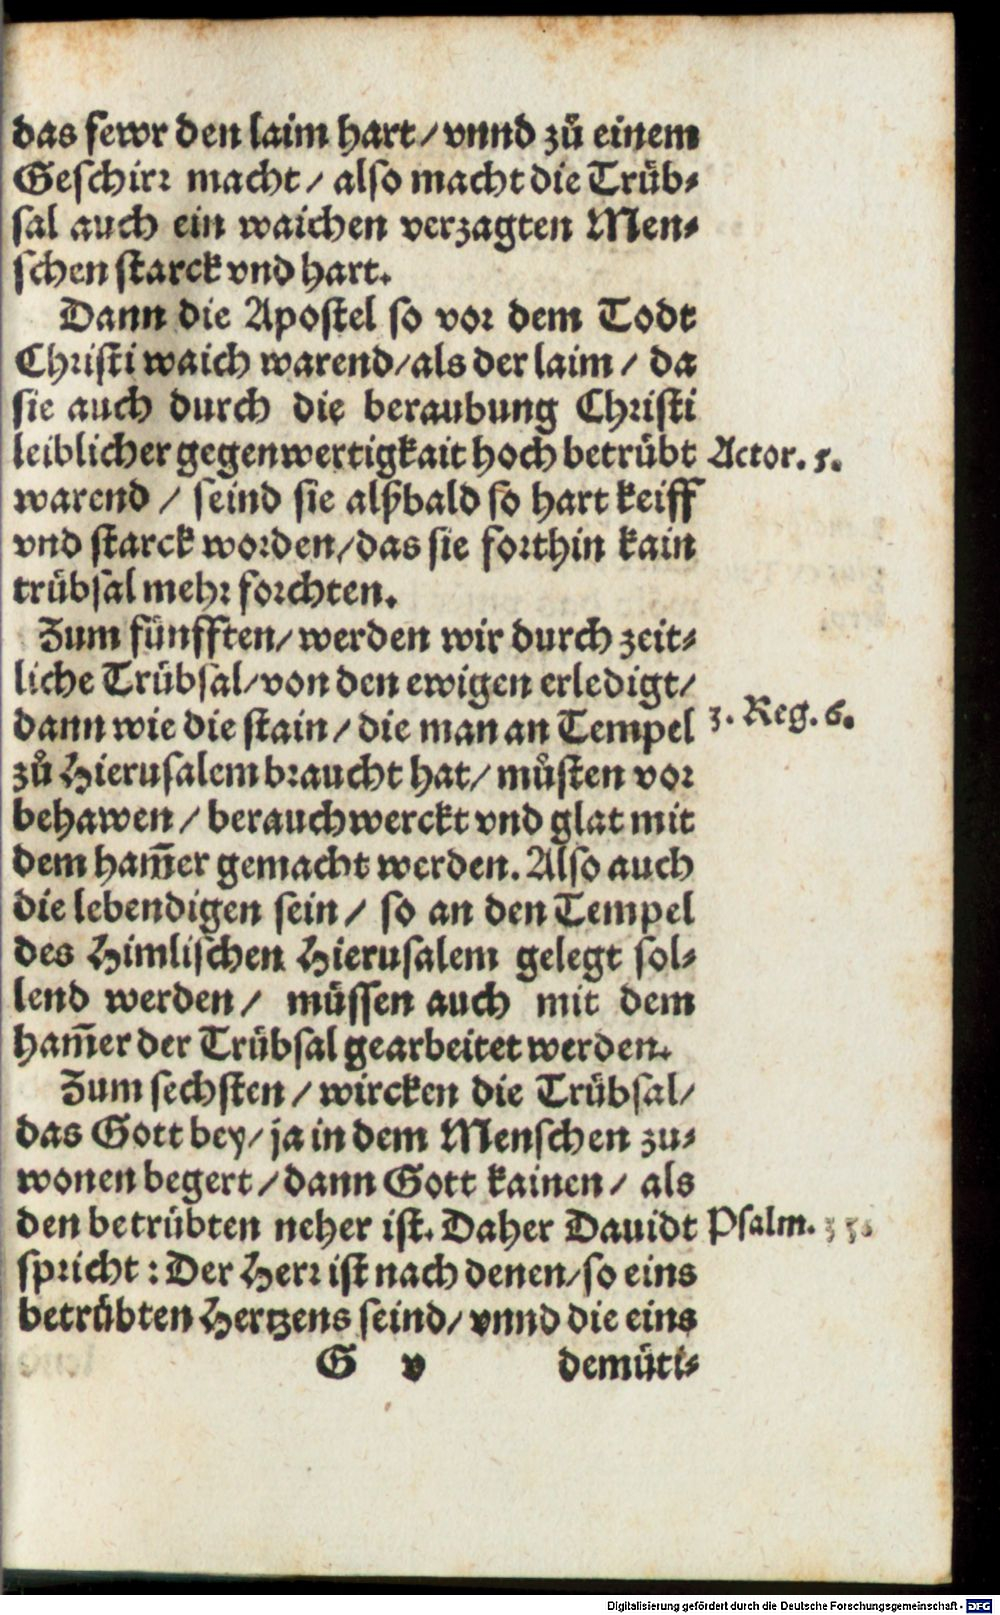 das fewr den laim hart / vnnd zů einem
Geschirr macht / also macht die Trüb-
sal auch ein waichen verzagten Men-
schen starck vnd hart.
Dann die Apostel so vor dem Todt
Christi waich warend / als der laim / da
sie auch durch die beraubung Christi
leiblicher gegenwertigkait hoch betrübt Actor. 5.
warend / seind sie alßbald so hart keiff
vnd starck worden / das sie forthin kain
trübsal mehr forchten.
Zum fünfften / werden wir durch zeit-
liche Trübsal / von den ewigen erledigt /
dann wie die stain / die man an Tempel 3. Reg. 6.
zů Hierusalem braucht hat / můsten vor
behawen / berauchwerckt vnd glat mit
dem ham̄er gemacht werden. Also auch
die lebendigen sein / so an den Tempel
des Himlischen Hierusalem gelegt sol-
lend werden / müssen auch mit dem
ham̄er der Trübsal gearbeitet werden.
Zum sechsten / wircken die Trübsal /
das Gott bey / ja in dem Menschen zu-
wonen begert / dann Gott kainen / als
den betrübten neher ist. Daher Dauidt Psalm.
spricht : Der Herr ist nach denen / so eins
betrübten Hertzens seind / vnnd die eins
G v demüti-
Digitalisierung gefördert durch die Deutsche Forschungsgemeinschaft - DFG